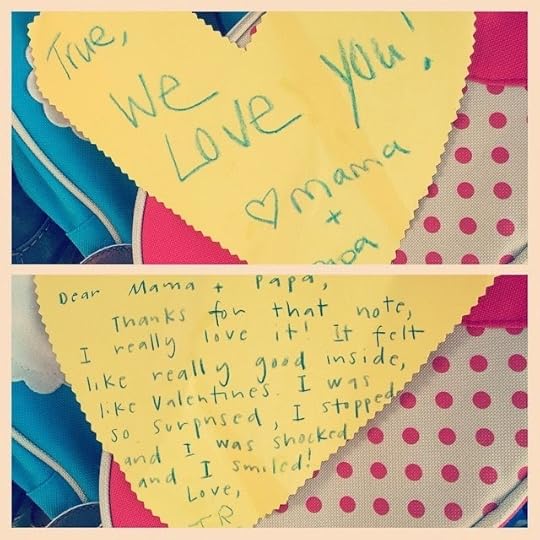 True,
We
Love You!
♡ Mama
+
Dear Mama + Papa,
Thanks for that note,
I really love it! It felt
like really good inside,
like Valentines. I was
so surprised, I stopped
and I was shocked
and I smiled!
Love,
TR